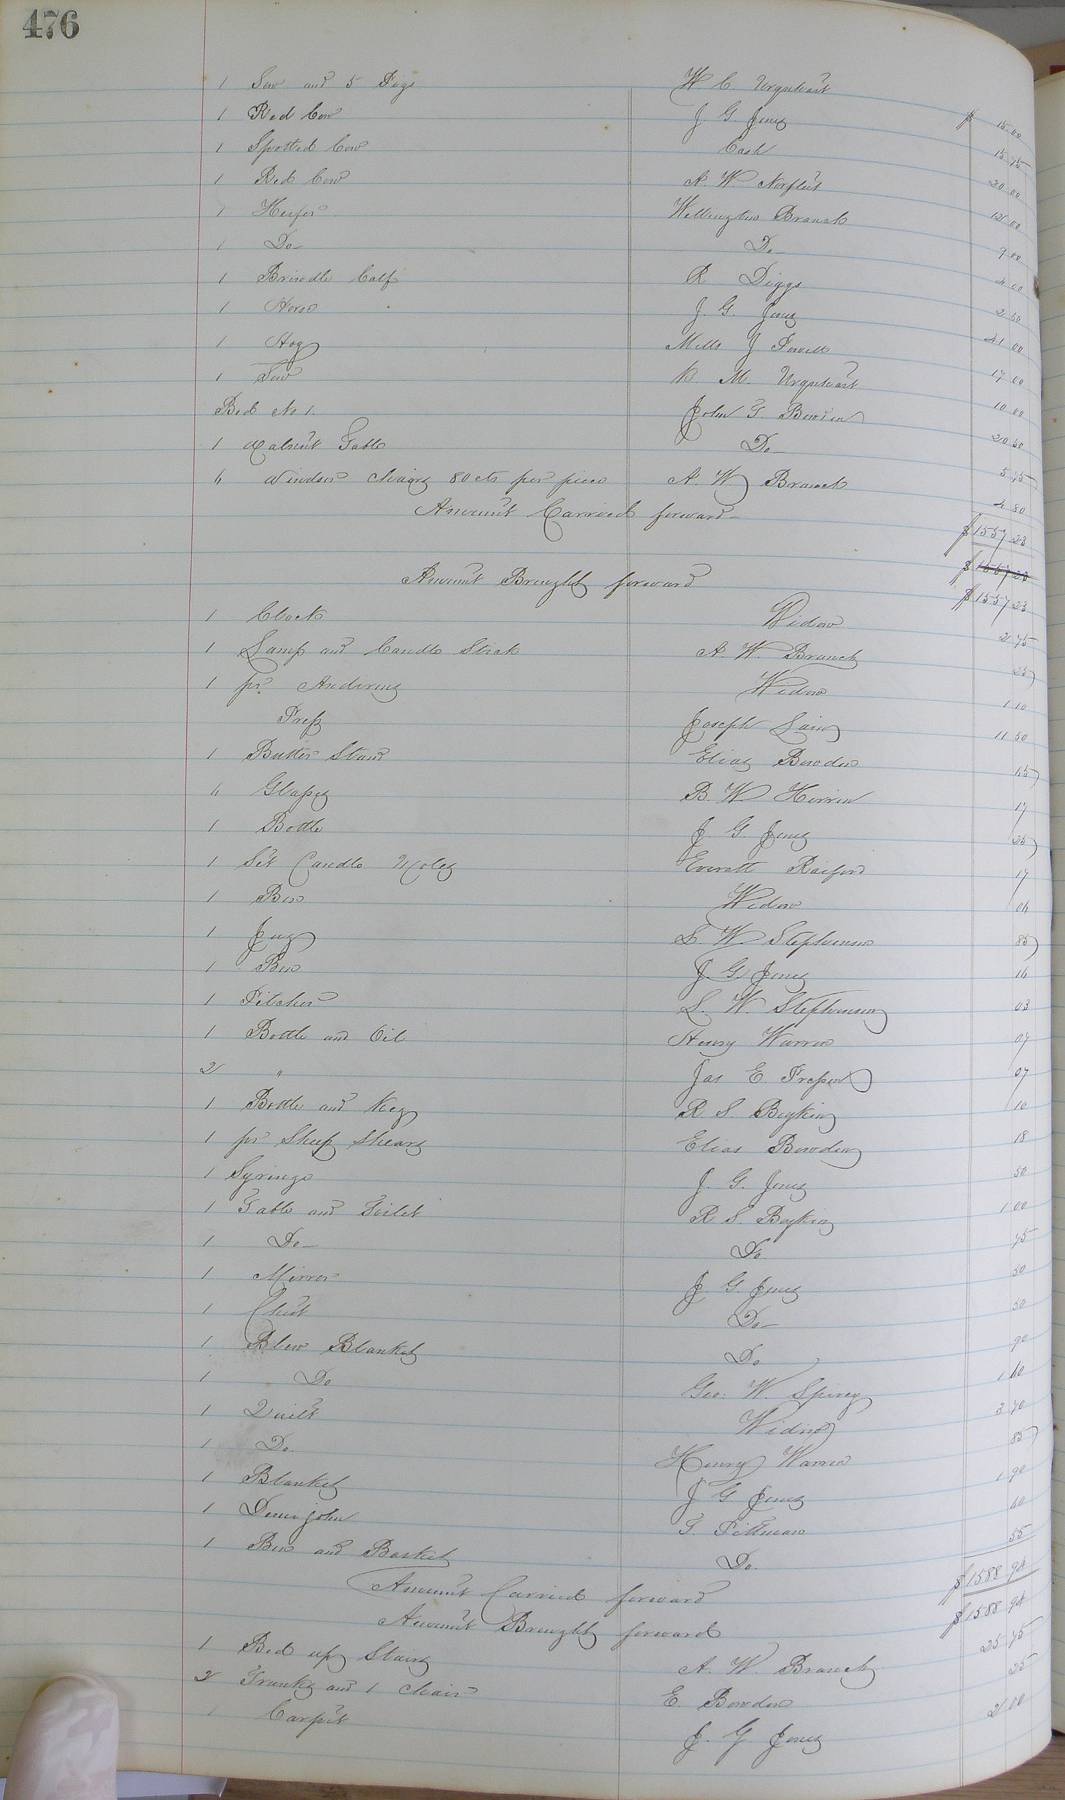 476
1 Sow and 5 Pigs W C Urquhart $ 15 00
1 Red Cow J G Jones 15 75
1 Spotted Cow Cash 20 00
1 Red Cow A. W Norfleet 12 00
1 Heifer Wellington Branch 9 00
1 Do Do 4 00
1 Brindle Calf R Diggs 2 50
1 Horse J. G. Jones 41 00
1 Hog Mills J Powell 17 00
1 Sow M. Urquhart 10 00
Bed No 1. John T Bowden 20 50
1 Walnut Table Do 5 75
6 Windsor Chairs 80 cts per piece A. W Branch 4 80
Amount Carried forward $1557 23
$1557 23
Amount Brought forward $1557 23
1 Clock Widow 2 75
1 Lamp and Candle Stick A. W. Branch 25
1 pr. Andirons Widow 1 10
Press Joseph Lain 11 50
1 Butter Stand Elias Bowden
Glasses B. W 17
1 Bottle J. G. Jones 25
1 Set Candle Molds Everett Raiford 17
1 Box Widow 04
1 Jug S. W Stephenson 85
1 Box J. G. Jones 16
1 Pitcher S. W. Stephenson 03
1 Bottle and Oil Henry Warren 07
2 " Jas E. 07
1 Bottle and Keg R S. Boykin 10
1 pr Sheep Shears Elias Bowden 18
1 Syringe J. G. Jones 50
1 Table and Toilet R. S. Boykin 1 00
1 Do Do 75
1 Mirror J G Jones 50
1 Chest Do 50
1 Blew Blanket Do 90
1 Do Geo. W. Spivey 1 10
1 Quilt Widow 3 70
1 Do. Henry Warren 85
1 Blanket J G Jones 1 90
1 Demijohn T Pittman 40
1 Box and Basket Do. 55
Amount Carried forward $1588 94
Amount Brought forward $1588 94
1 Bed up Stairs A. W. Branch 25 75
2 Trunks and 1 Chair E Bowden 25
1 Carpet J. G Jones 2 00